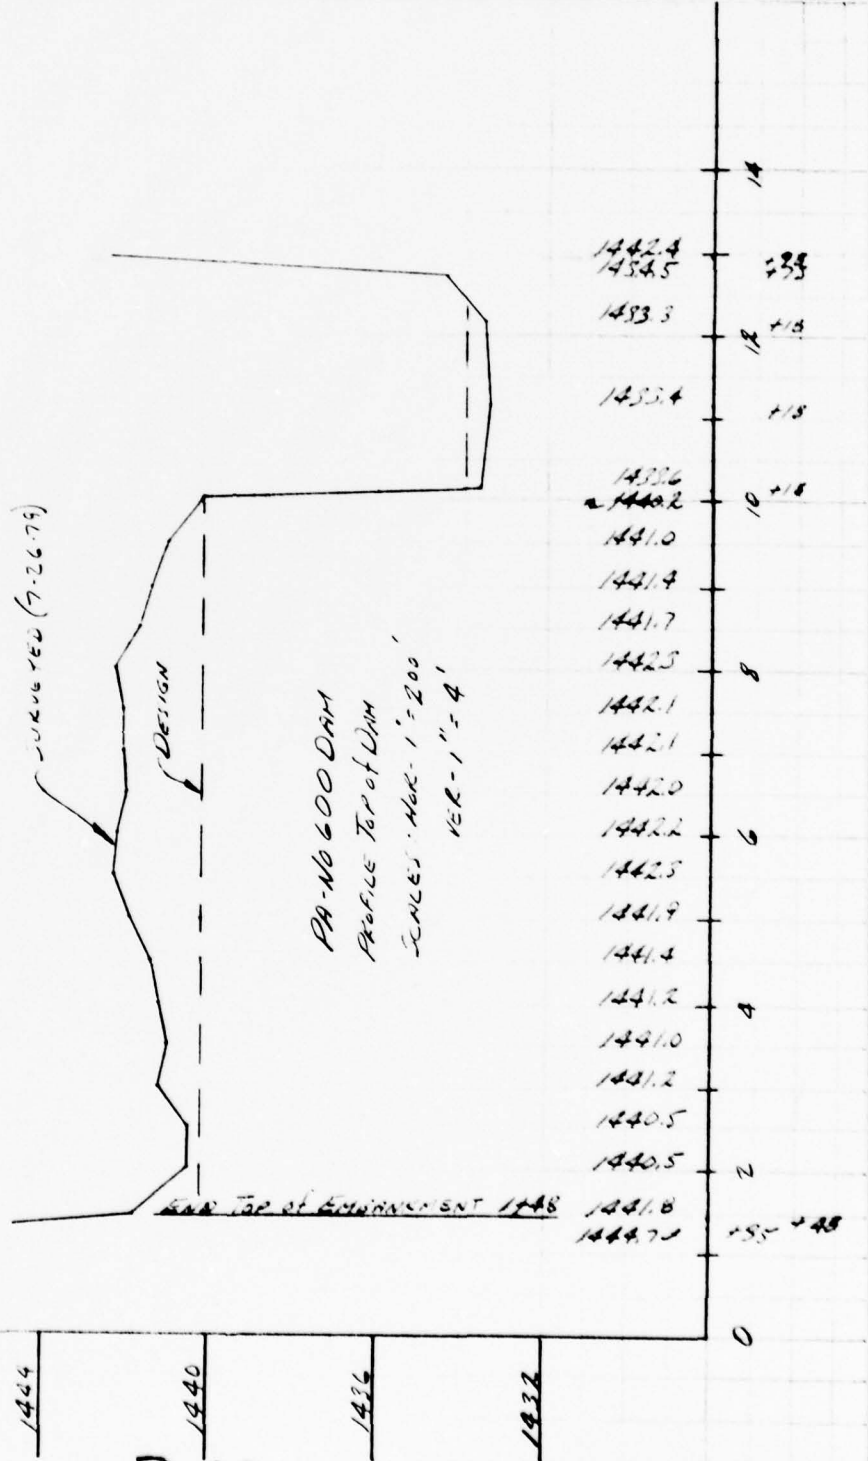 SURVEYED (7-26-79)
DESIGN
PA-NO 600 DAM
PROFILE TOP of DAM
SCALES: HOR- 1" = 200'
VER- 1" = 4'
END TOP of EMBANKMENT 1+48
1444
1440
1436
1432
1444.7
1441.8
1440.5
1440.5
1441.2
1441.0
1441.2
1441.4
1441.9
1442.3
1442.2
1442.0
1442.1
1442.1
1442.3
1441.7
1441.4
1441.0
1440.2
1433.6
1433.4
1433.3
1434.5
1442.4
0
2
4
6
8
10
12
14
+35
+48
+18
+18
+18